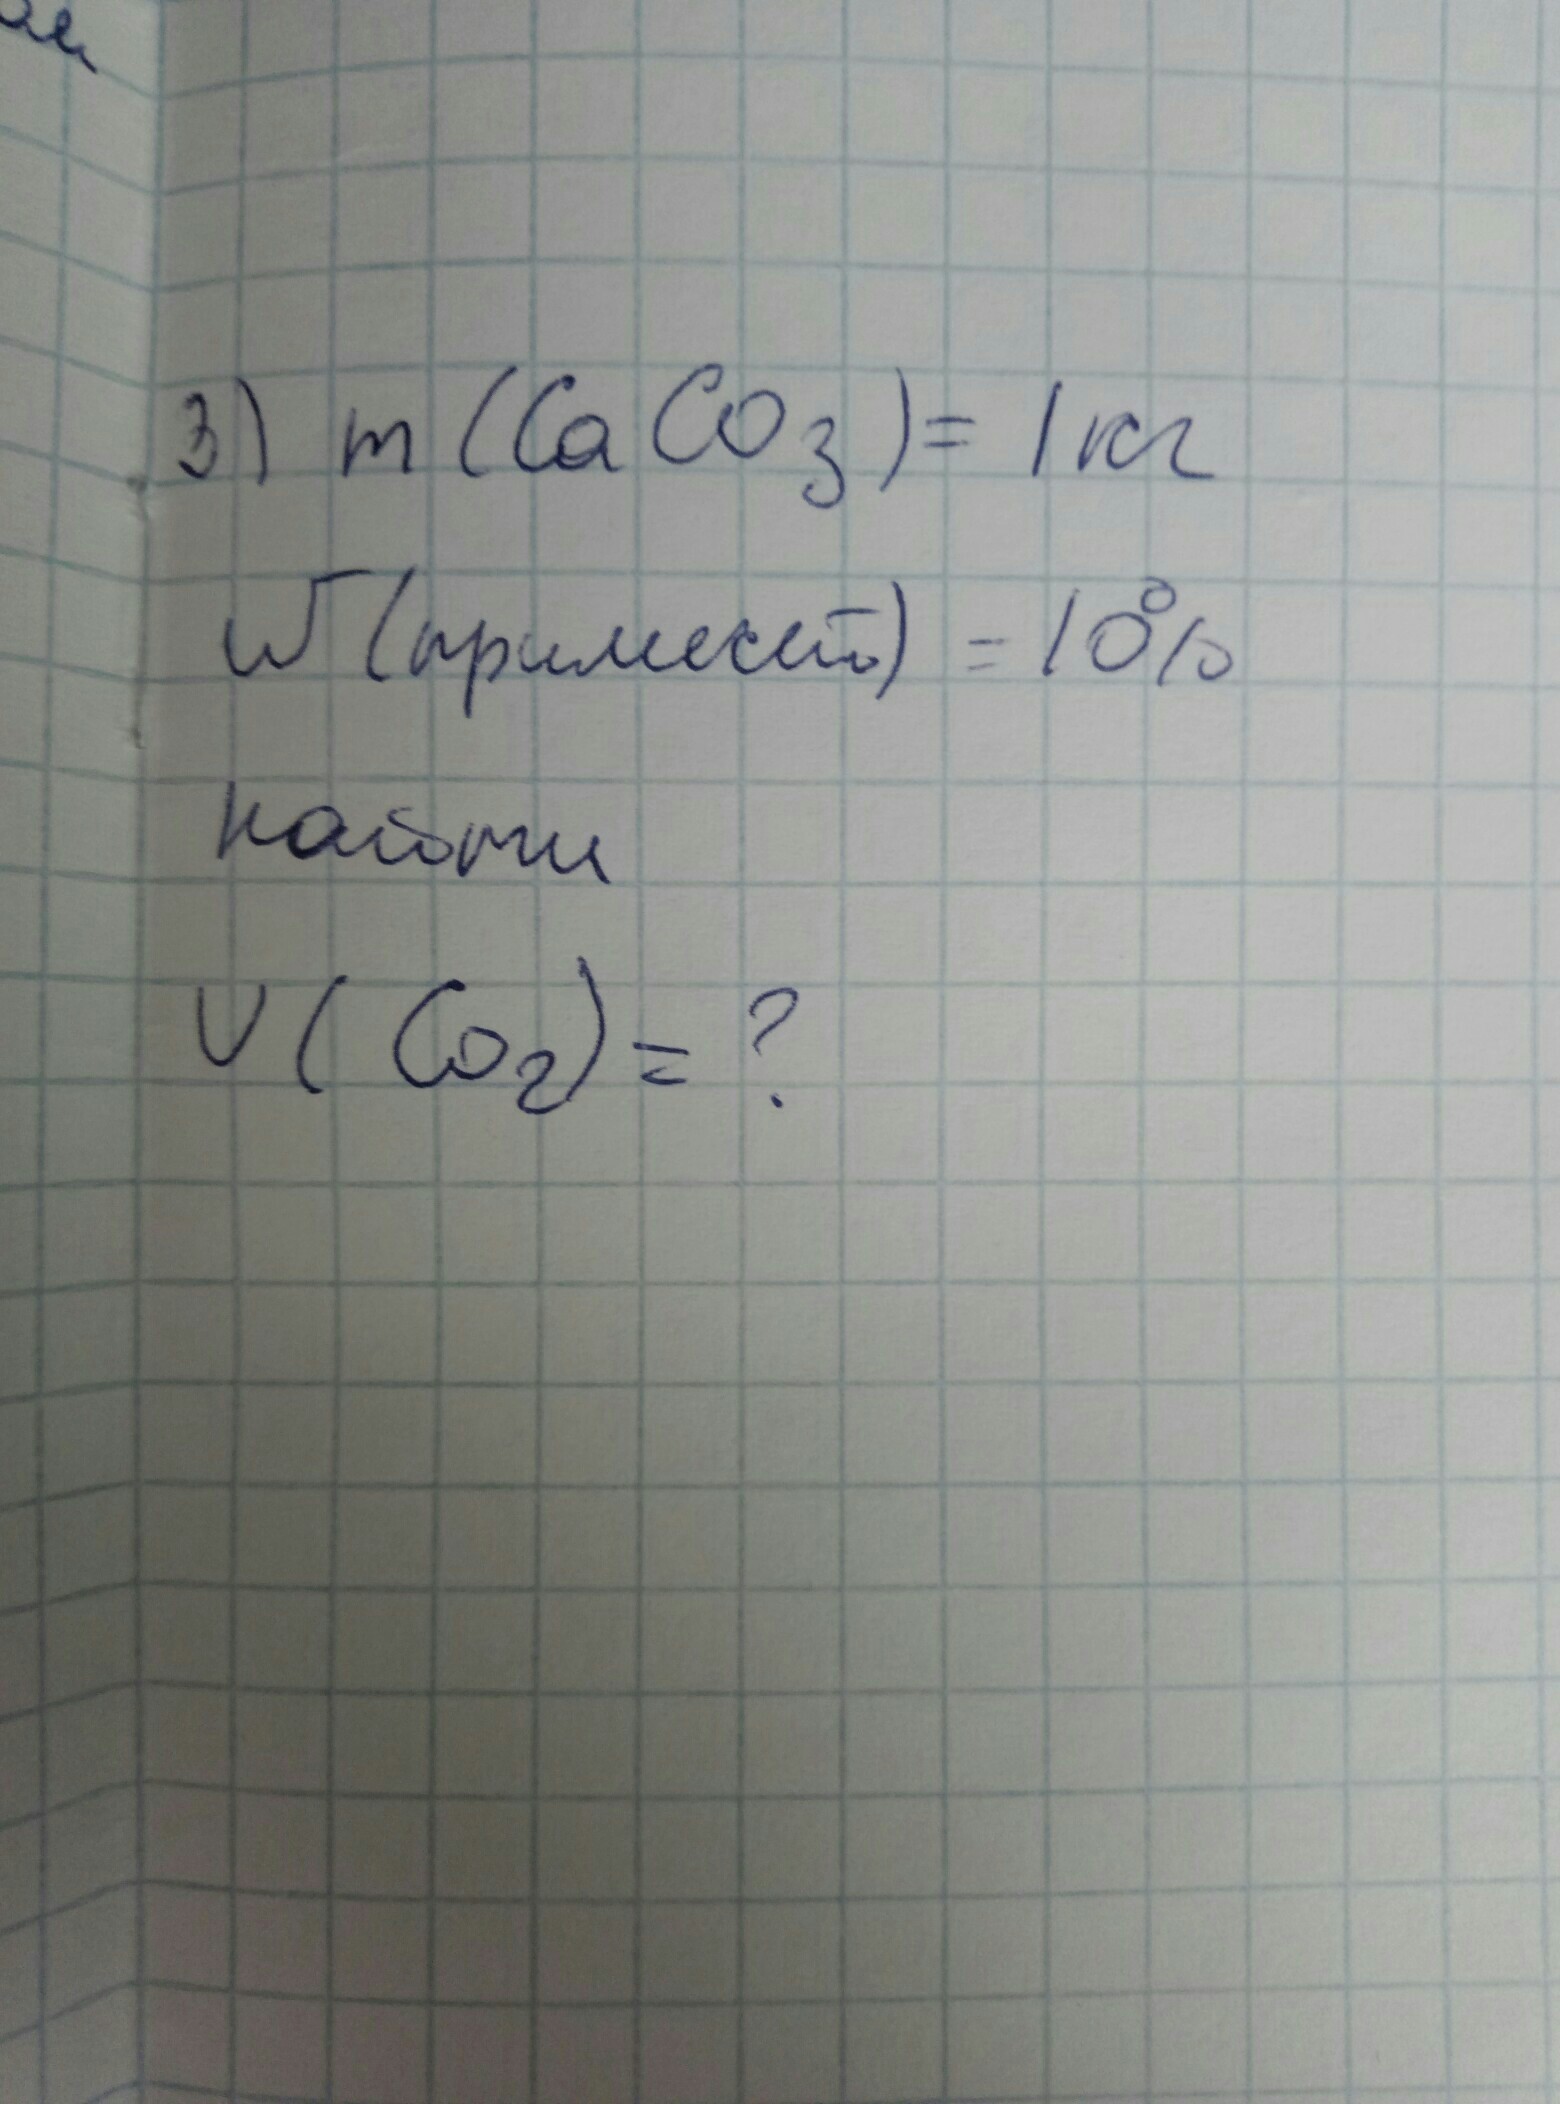 3) m (CaCO₃) = 1 кг
w (примесей) = 10%
найти
V (CO₂) = ?